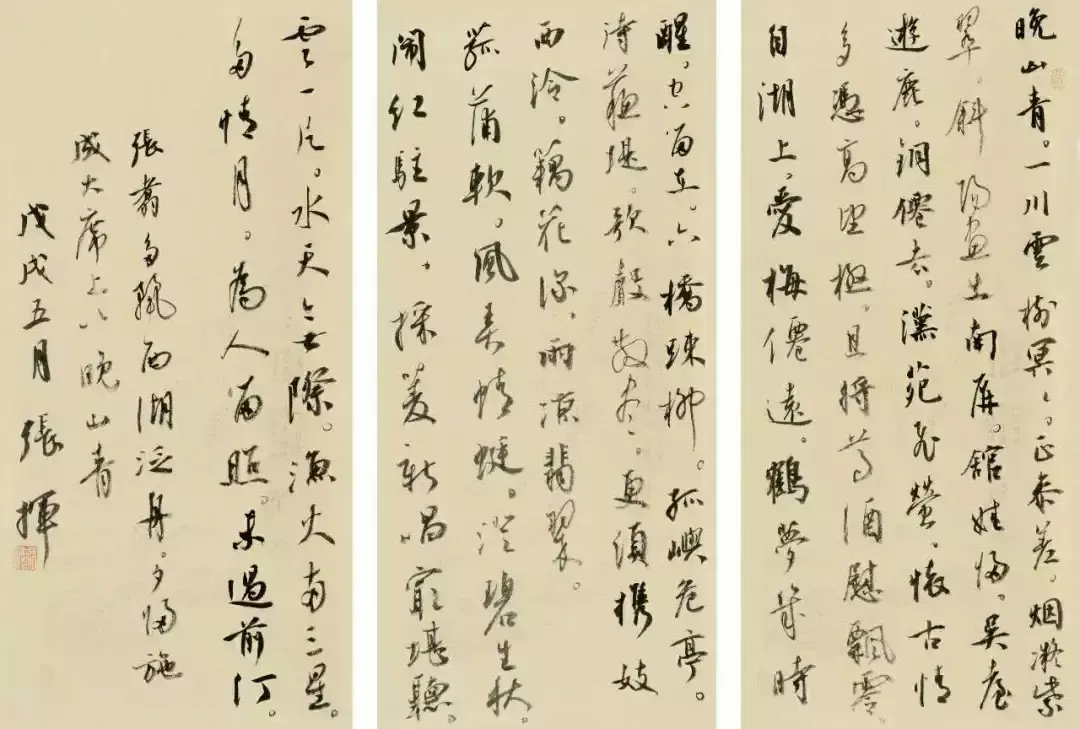 晚山青。一川雲樹冥〻。正泰差,烟凝紫
翠。斜陽畫出南屏。館娃歸,吳臺
遊鹿。銅僊去。漢苑飛螢,懷古情
多憑高望極,且將尊酒慰飄零。
自湖上,愛梅僊遠。鶴夢幾時
醒。空留在。六橋疎柳。孤嶼危亭。
待蘓堤。歌聲散尽,更須携妓
西泠。藕花深,雨凉翡翠。
菰蒲軟。風弄蜻蜓。澄碧生秋。
闹紅駐景,採菱新唱最堪聽。
雲一片。水天無際。漁火兩三星。
多情月。為人留照。未過前汀。
張翥多麗西湖泛舟夕歸施
成大席上以晚山青
戊戌五月 張揮